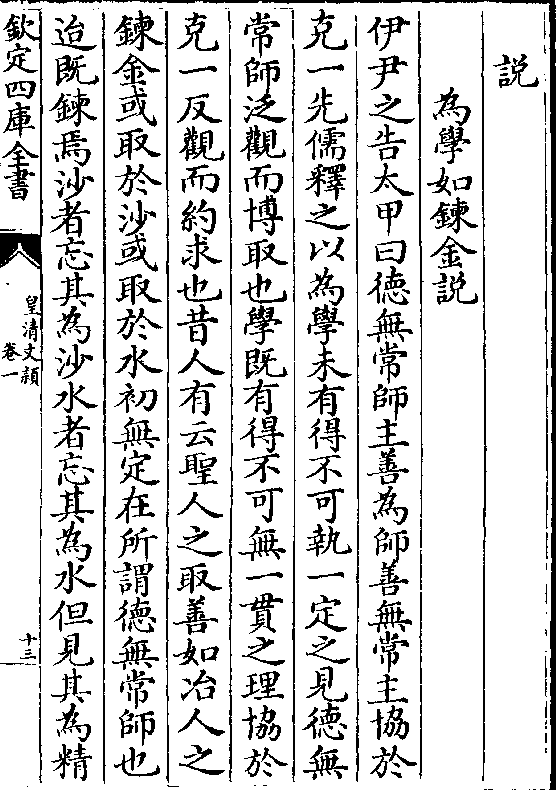 説
為學如鍊金説
伊尹之告太甲曰德無常師主善為師善無常主協於
克一先儒釋之以為學未有得不可執一定之見德無
常師泛觀而博取也學既有得不可無一貫之理協於
克一反觀而約求也昔人有云聖人之取善如冶人之
鍊金或取於沙或取於水初無定在所謂德無常師也
迨既鍊焉沙者忘其為沙水者忘其為水但見其為精
欽定四庫全書
皇清文穎
卷一
十三